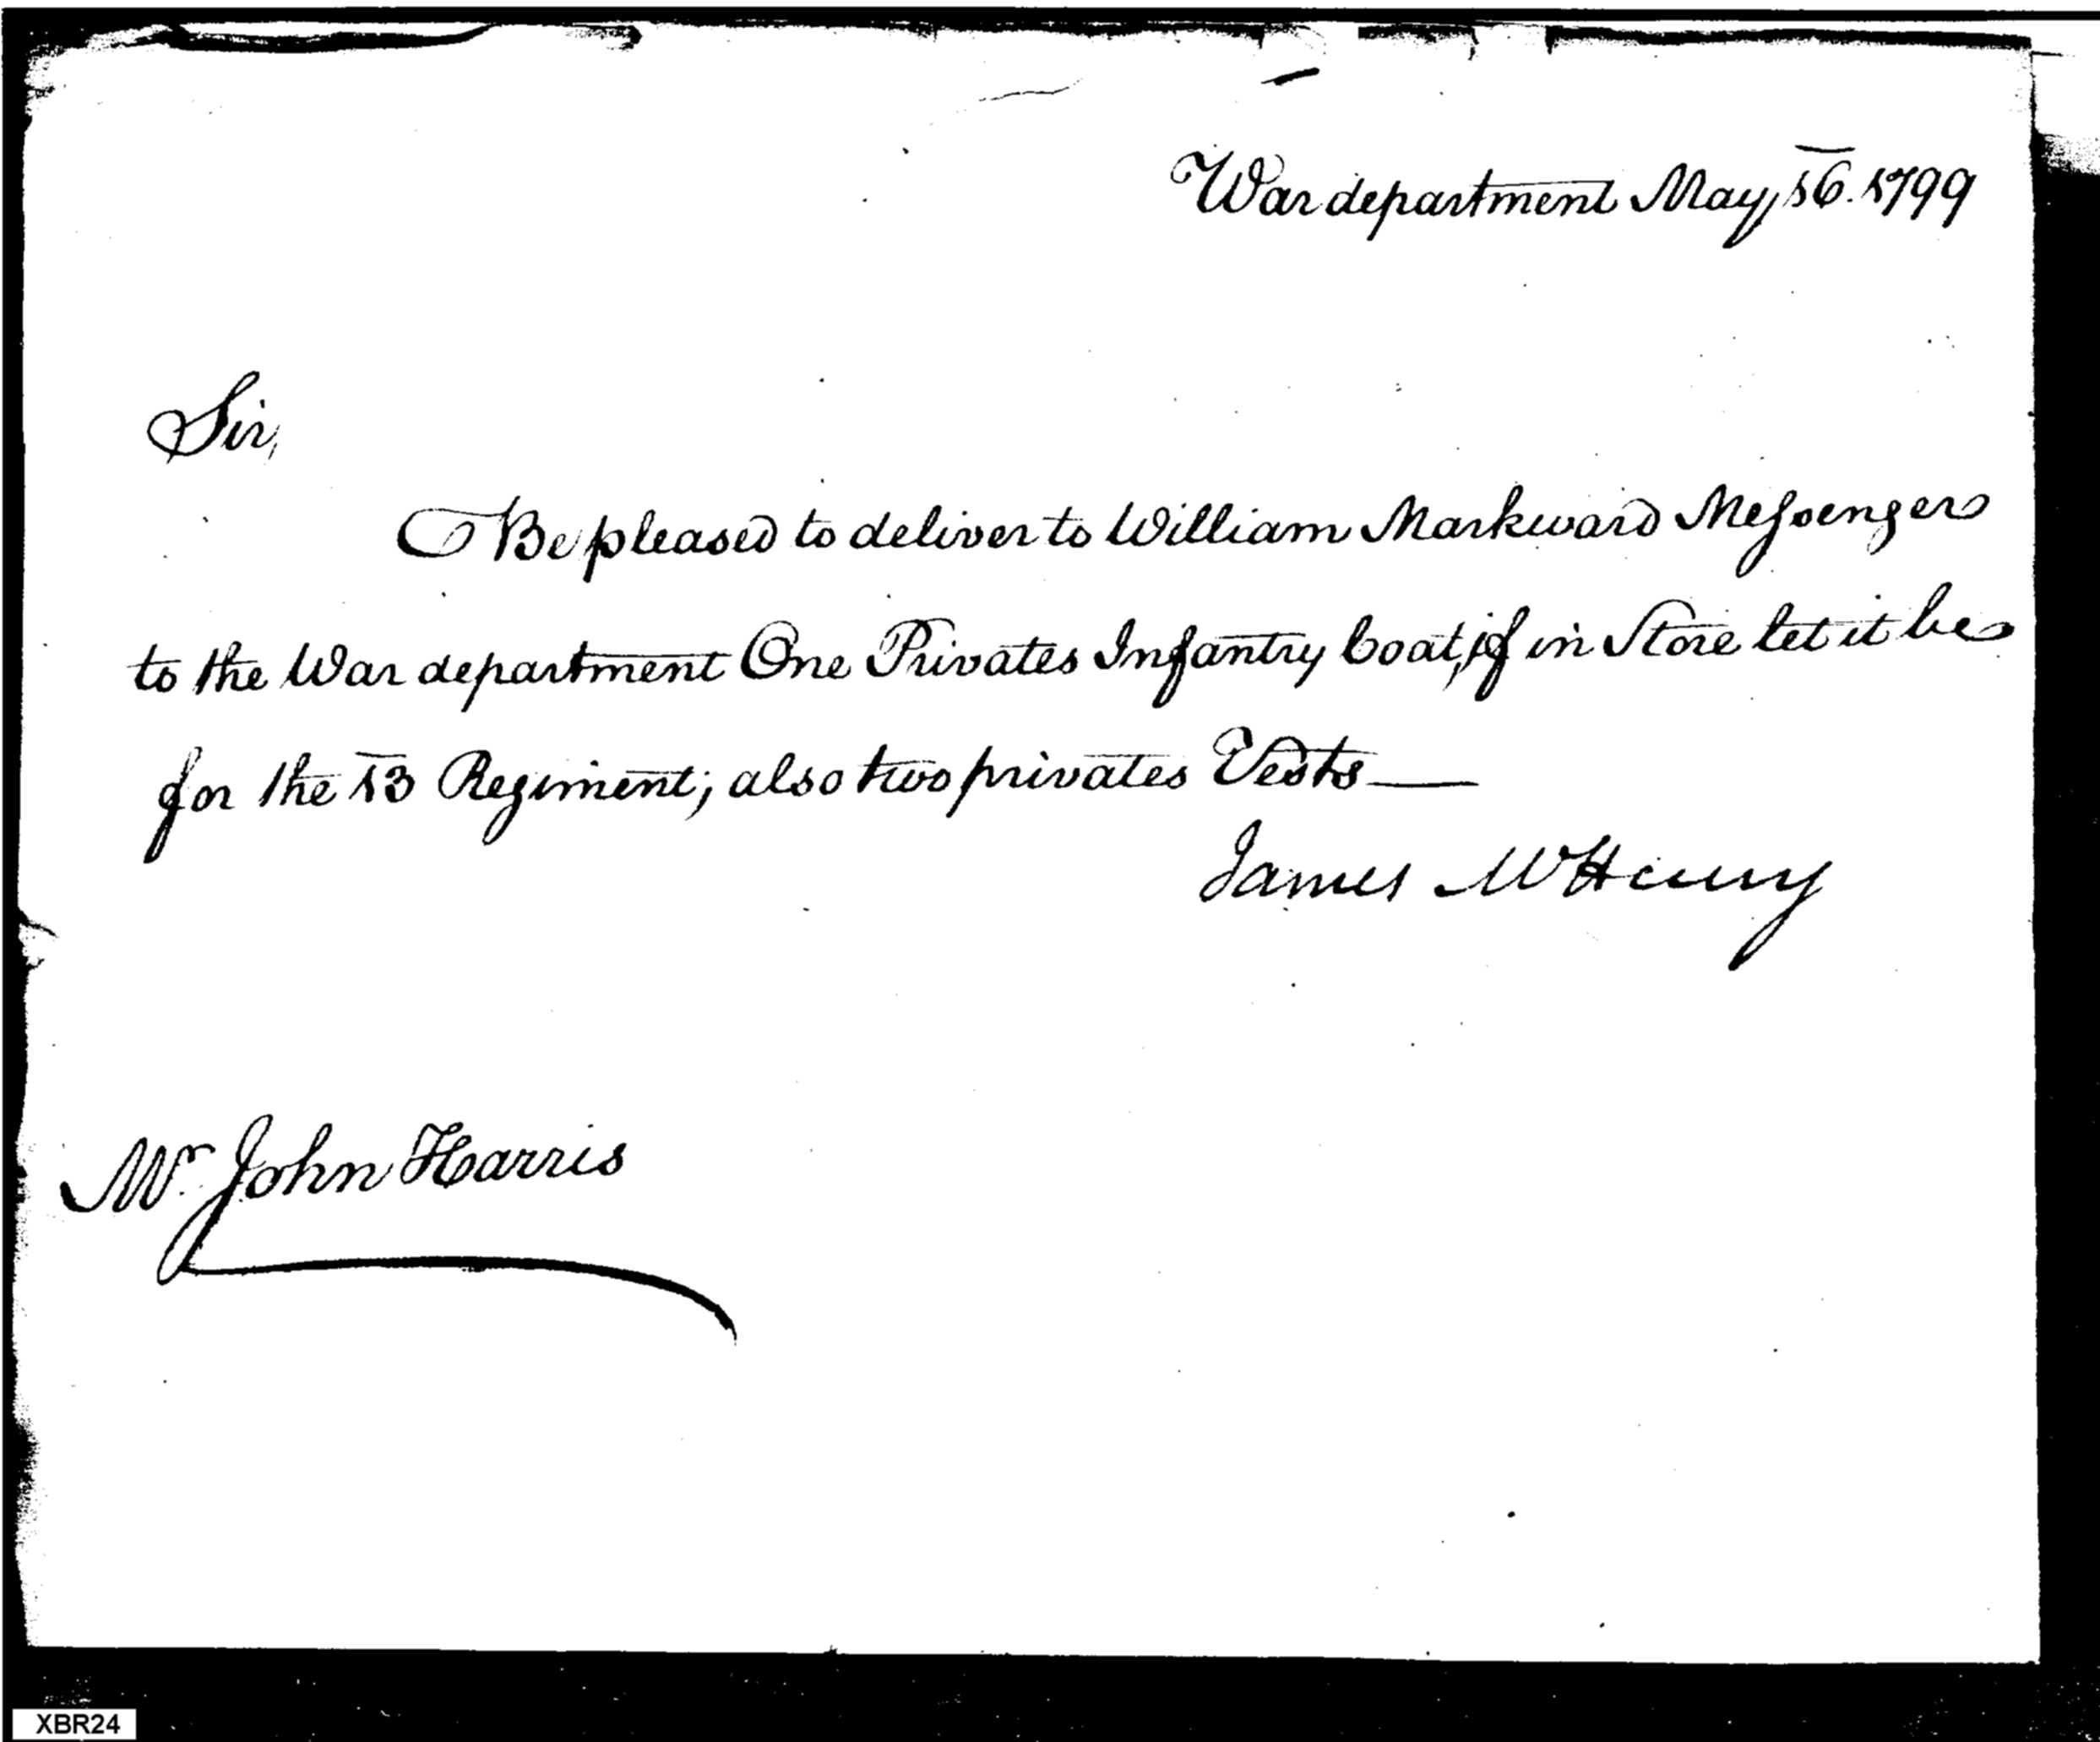 War department May 16. 1799
Sir,
Be pleased to deliver to William Markward Messenger
to the War department One Privates Infantry Coat, if in Store let it be
for the 13 Regiment; also two privates Vests—
James McHenry
Mr. John Harris
XBR24